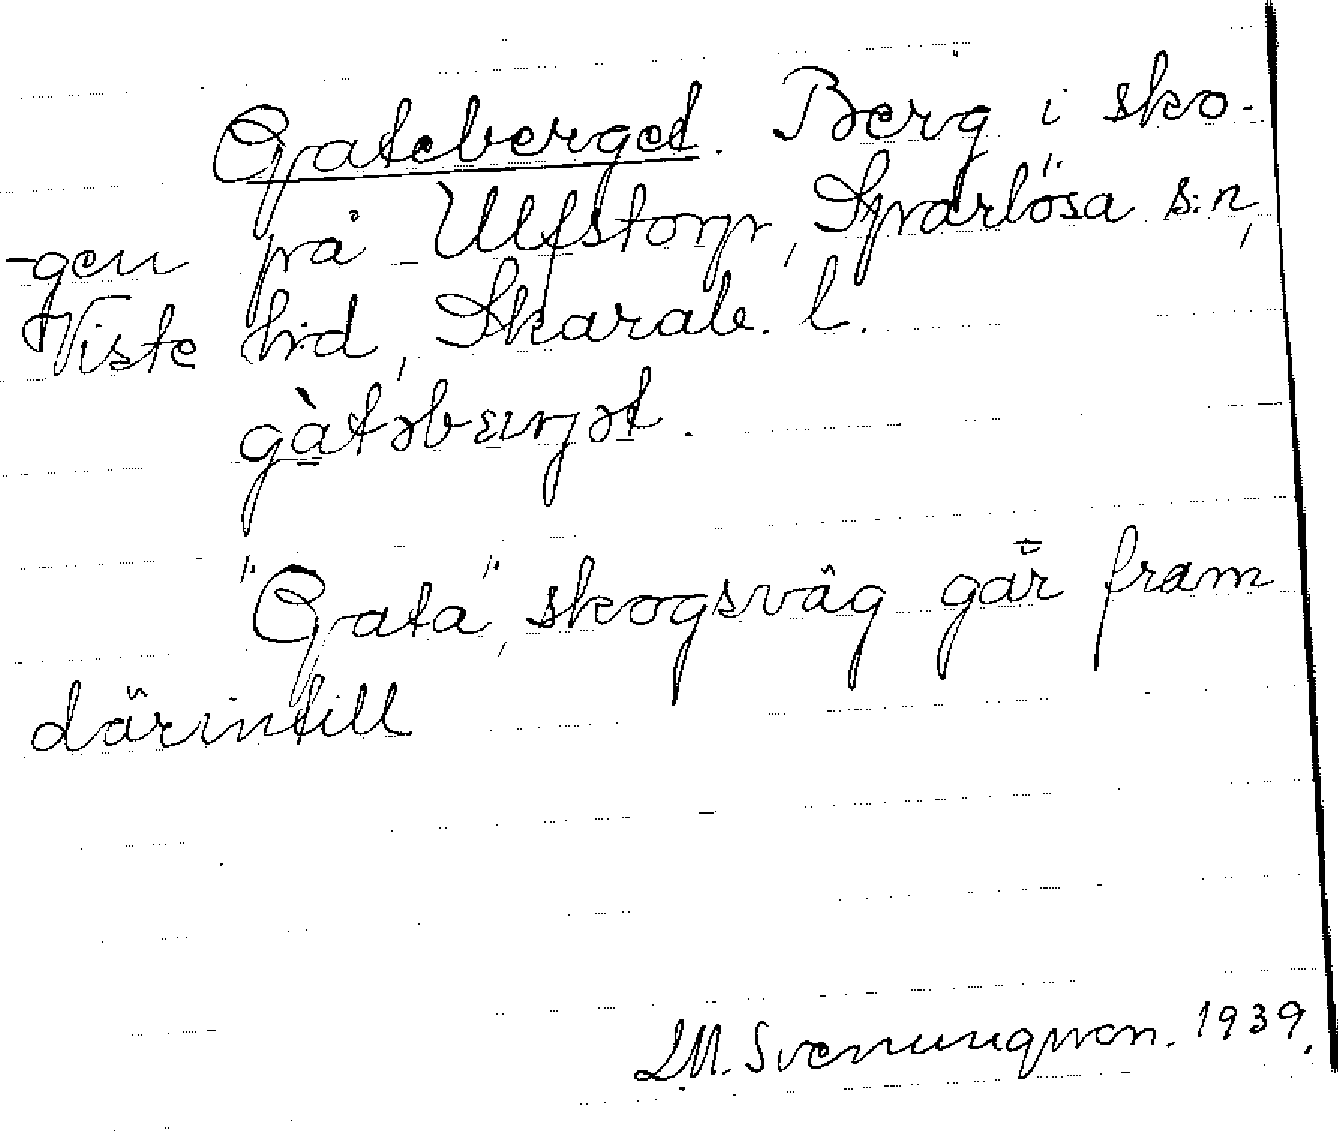 Gateberget. Berg i sko-
-gen på Ulfstorp, Sparlösa s:n,
Viste hrd, Skarab. l.
gàtəbærjət.
"Gata", skogsväg går fram
därintill
L.M. Svenungsson. 1939.